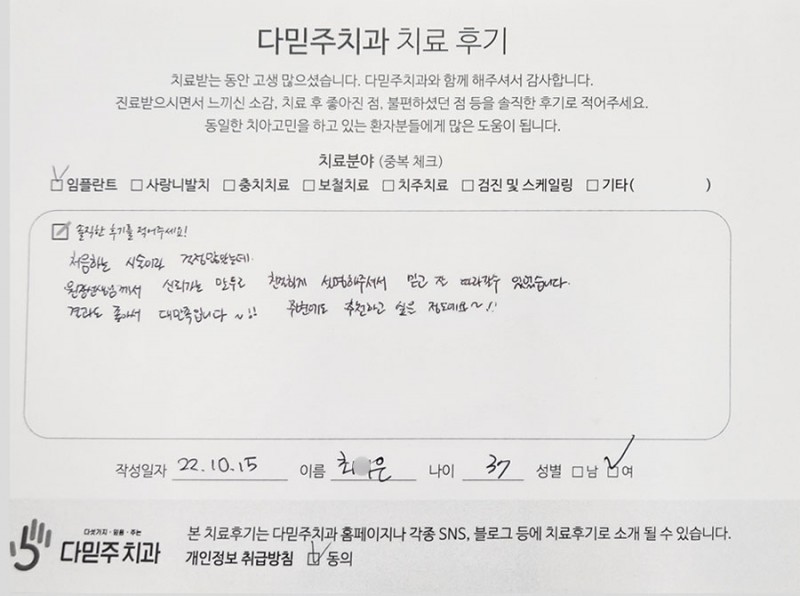 다믿주치과 치료 후기
치료받는 동안 고생 많으셨습니다. 다믿주치과와 함께 해주셔서 감사합니다.
진료받으시면서 느끼신 소감, 치료 후 좋아진 점, 불편하셨던 점 등을 솔직한 후기로 적어주세요.
동일한 치아고민을 하고 있는 환자분들에게 많은 도움이 됩니다.
치료분야 (중복 체크)
임플란트 사랑니발치 충치치료 보철치료 치주치료 검진 및 스케일링 기타( )
솔직한 후기를 적어주세요!
처음하는 시술이라 걱정많았는데
원장선생님께서 신뢰가는 말투로 친절하게 설명해주셔서 믿고 잘 따라갈수 있었습니다.
결과도 좋아서 대만족입니다~!! 주변에도 추천하고 싶은 정도예요~!!
작성일자 22.10.15 이름 최 은 나이 37 성별 남 여
다섯가지·믿음·주는
다믿주치과
본 치료후기는 다믿주치과 홈페이지나 각종 SNS, 블로그 등에 치료후기로 소개 될 수 있습니다.
개인정보 취급방침 동의